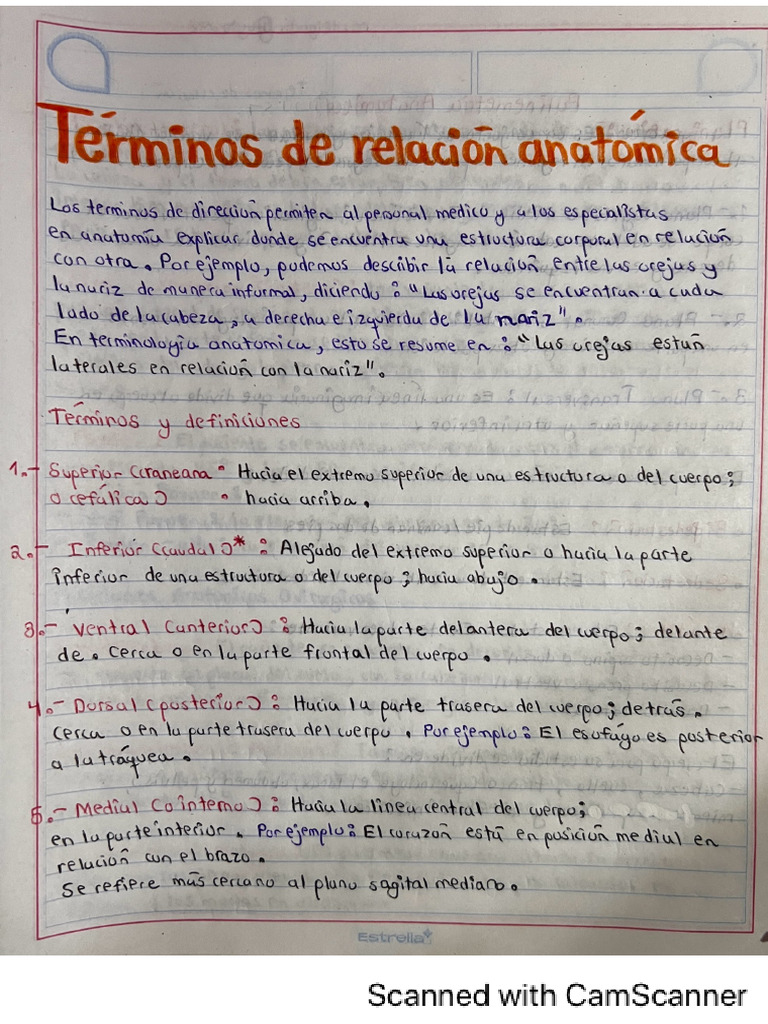 Términos de relación anatómica
Los terminos de dirección permiten al personal medico y a los especialistas
en anatomía explicar donde se encuentra una estructura corporal en relación
con otra. Por ejemplo, podemos describir la relación entre las orejas y
la nariz de manera informal, diciendo: "Las orejas se encuentran a cada
lado de la cabeza, a derecha e izquierda de la nariz".
En terminología anatomica, esto se resume en: "Las orejas están
laterales en relación con la nariz".
Términos y definiciones
1.- Superior (craneana • Hacia el extremo superior de una estructura o del cuerpo;
o cefálica) • hacia arriba.
2.- Inferior (caudal)* : Alejado del extremo superior o hacia la parte
inferior de una estructura o del cuerpo; hacia abajo.
3.- Ventral (anterior) : Hacia la parte delantera del cuerpo; delante
de. Cerca o en la parte frontal del cuerpo.
4.- Dorsal (posterior) : Hacia la parte trasera del cuerpo; detrás.
Cerca o en la parte trasera del cuerpo. Por ejemplo: El esofágo es posterior
a la tráquea.
5.- Medial (o interno) : Hacia la linea central del cuerpo;
en la parte interior. Por ejemplo: El corazón está en posición medial en
relación con el brazo.
Se refiere más cercano al plano sagital mediano.
Estrella
Scanned with CamScanner